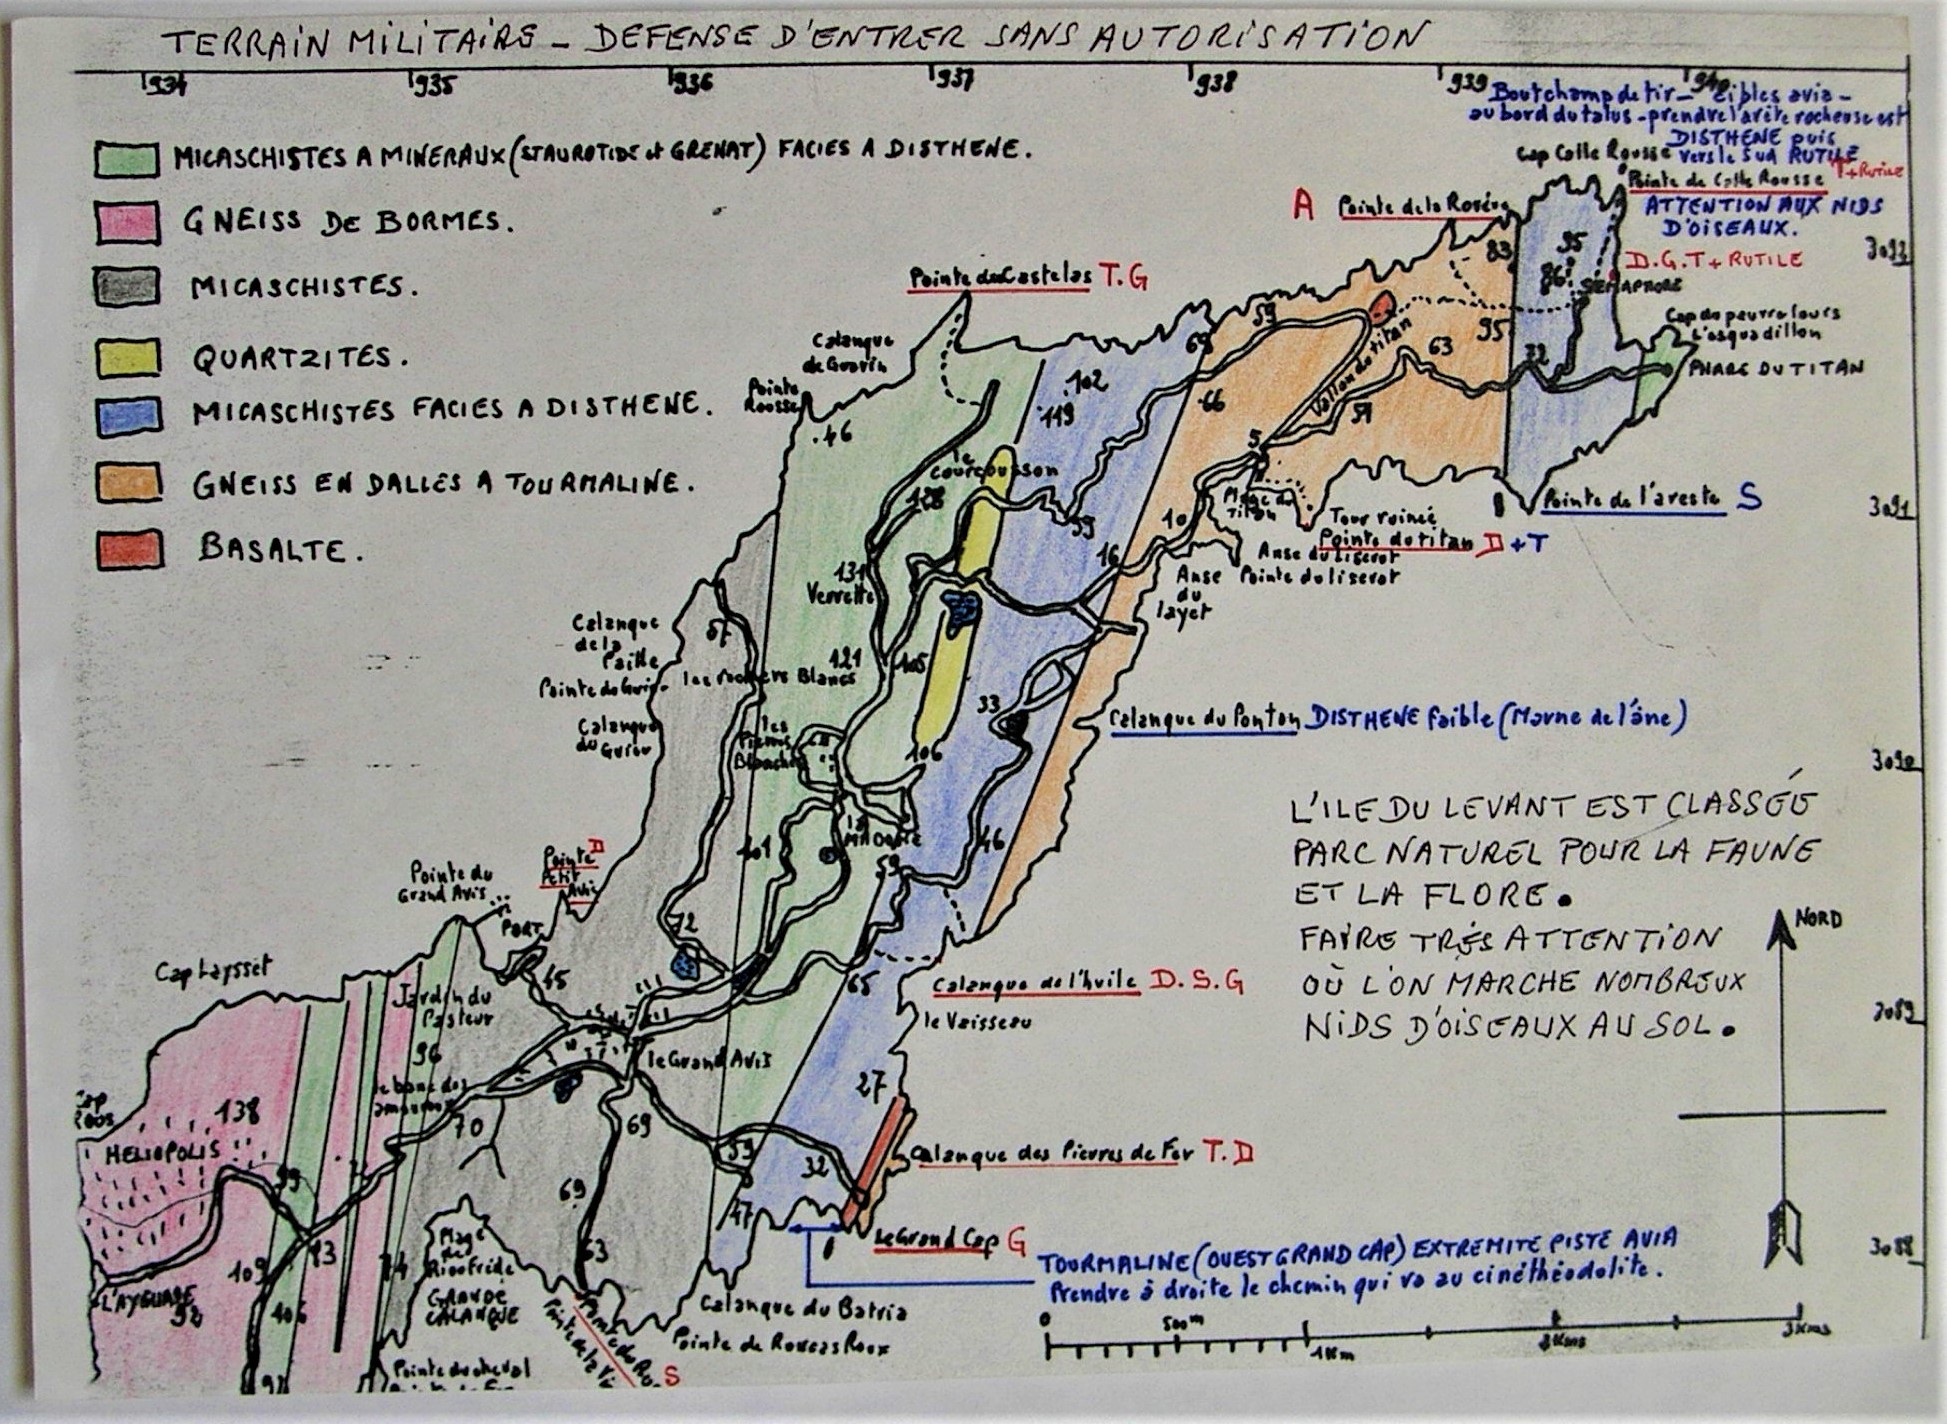 TERRAIN MILITAIRE - DEFENSE D'ENTRER SANS AUTORISATION
934 935 936 937 938 939 940
Boutchamp de tir - cibles avia -
au bord du talus - prendre l'arête rocheuse est
DISTHENE puis
vers le Sud RUTILE
T + RUTILE
Cap Calle Rousse
Pointe de Calle Rousse
ATTENTION AUX NIDS
D'OISEAUX.
D.G.T + RUTILE
SEMAPHORE
MICASCHISTES A MINERAUX (STAUROTIDE et GRENAT) FACIES A DISTHENE.
GNEISS DE BORMES.
MICASCHISTES.
QUARTZITES.
MICASCHISTES FACIES A DISTHENE.
GNEISS EN DALLES A TOURMALINE.
BASALTE.
A Pointe de la Rovère
83
95
86
3092
Pointe du Castelas T.G
59
69
Vallon du titan
63
95
32
51
5
L'esquadillon
PHARE DU TITAN
Calanque
Pointe
Rousse
.46
102
119
66
le
courcousson
128
59
10
16
Plage du
Titan
Tour ruinée
Pointe du titan D + T
Pointe de l'areste S
3091
Anse du Liserot
Pointe du liserot
Anse
du
layet
131
Verrette
Calanque
de la
Paille
67
les rochers Blancs
121
105
33
Calanque
les
Pierres
Blanches
106
Calanque du Ponton DISTHENE faible (Morne de l'âne)
3090
L'ILE DU LEVANT EST CLASSÉE
PARC NATUREL POUR LA FAUNE
ET LA FLORE.
FAIRE TRÉS ATTENTION
OÙ L'ON MARCHE NOMBREUX
NIDS D'OISEAUX AU SOL.
NORD
101
59
46
Pointe D
Petit
Avis
Pointe du
Grand Avis
PORT
72
45
Cap Laysset
Jardin du
Pasteur
96
65
Calanque de l'huile D.S.G
le Vaisseau
3089
le Grand Avis
le banc des
amoureux
138
HELIOPOLIS
99
70
69
69
63
27
59
32
47
Calanque des Pierres de Fer T.D
le Grand Cap G
TOURMALINE (OUEST GRAND CAP) EXTREMITE PISTE AVIA
Prendre à droite le chemin qui va au cinéthéodolite.
3088
109
93
74
106
L'AYGUADE
Plage
de
Rioufrède
GRANDE
CALANQUE
Calanque du Batria
Pointe de Roucas Roux
Pointe du cheval
S
0 500m 1Km 2Kms 3Kms